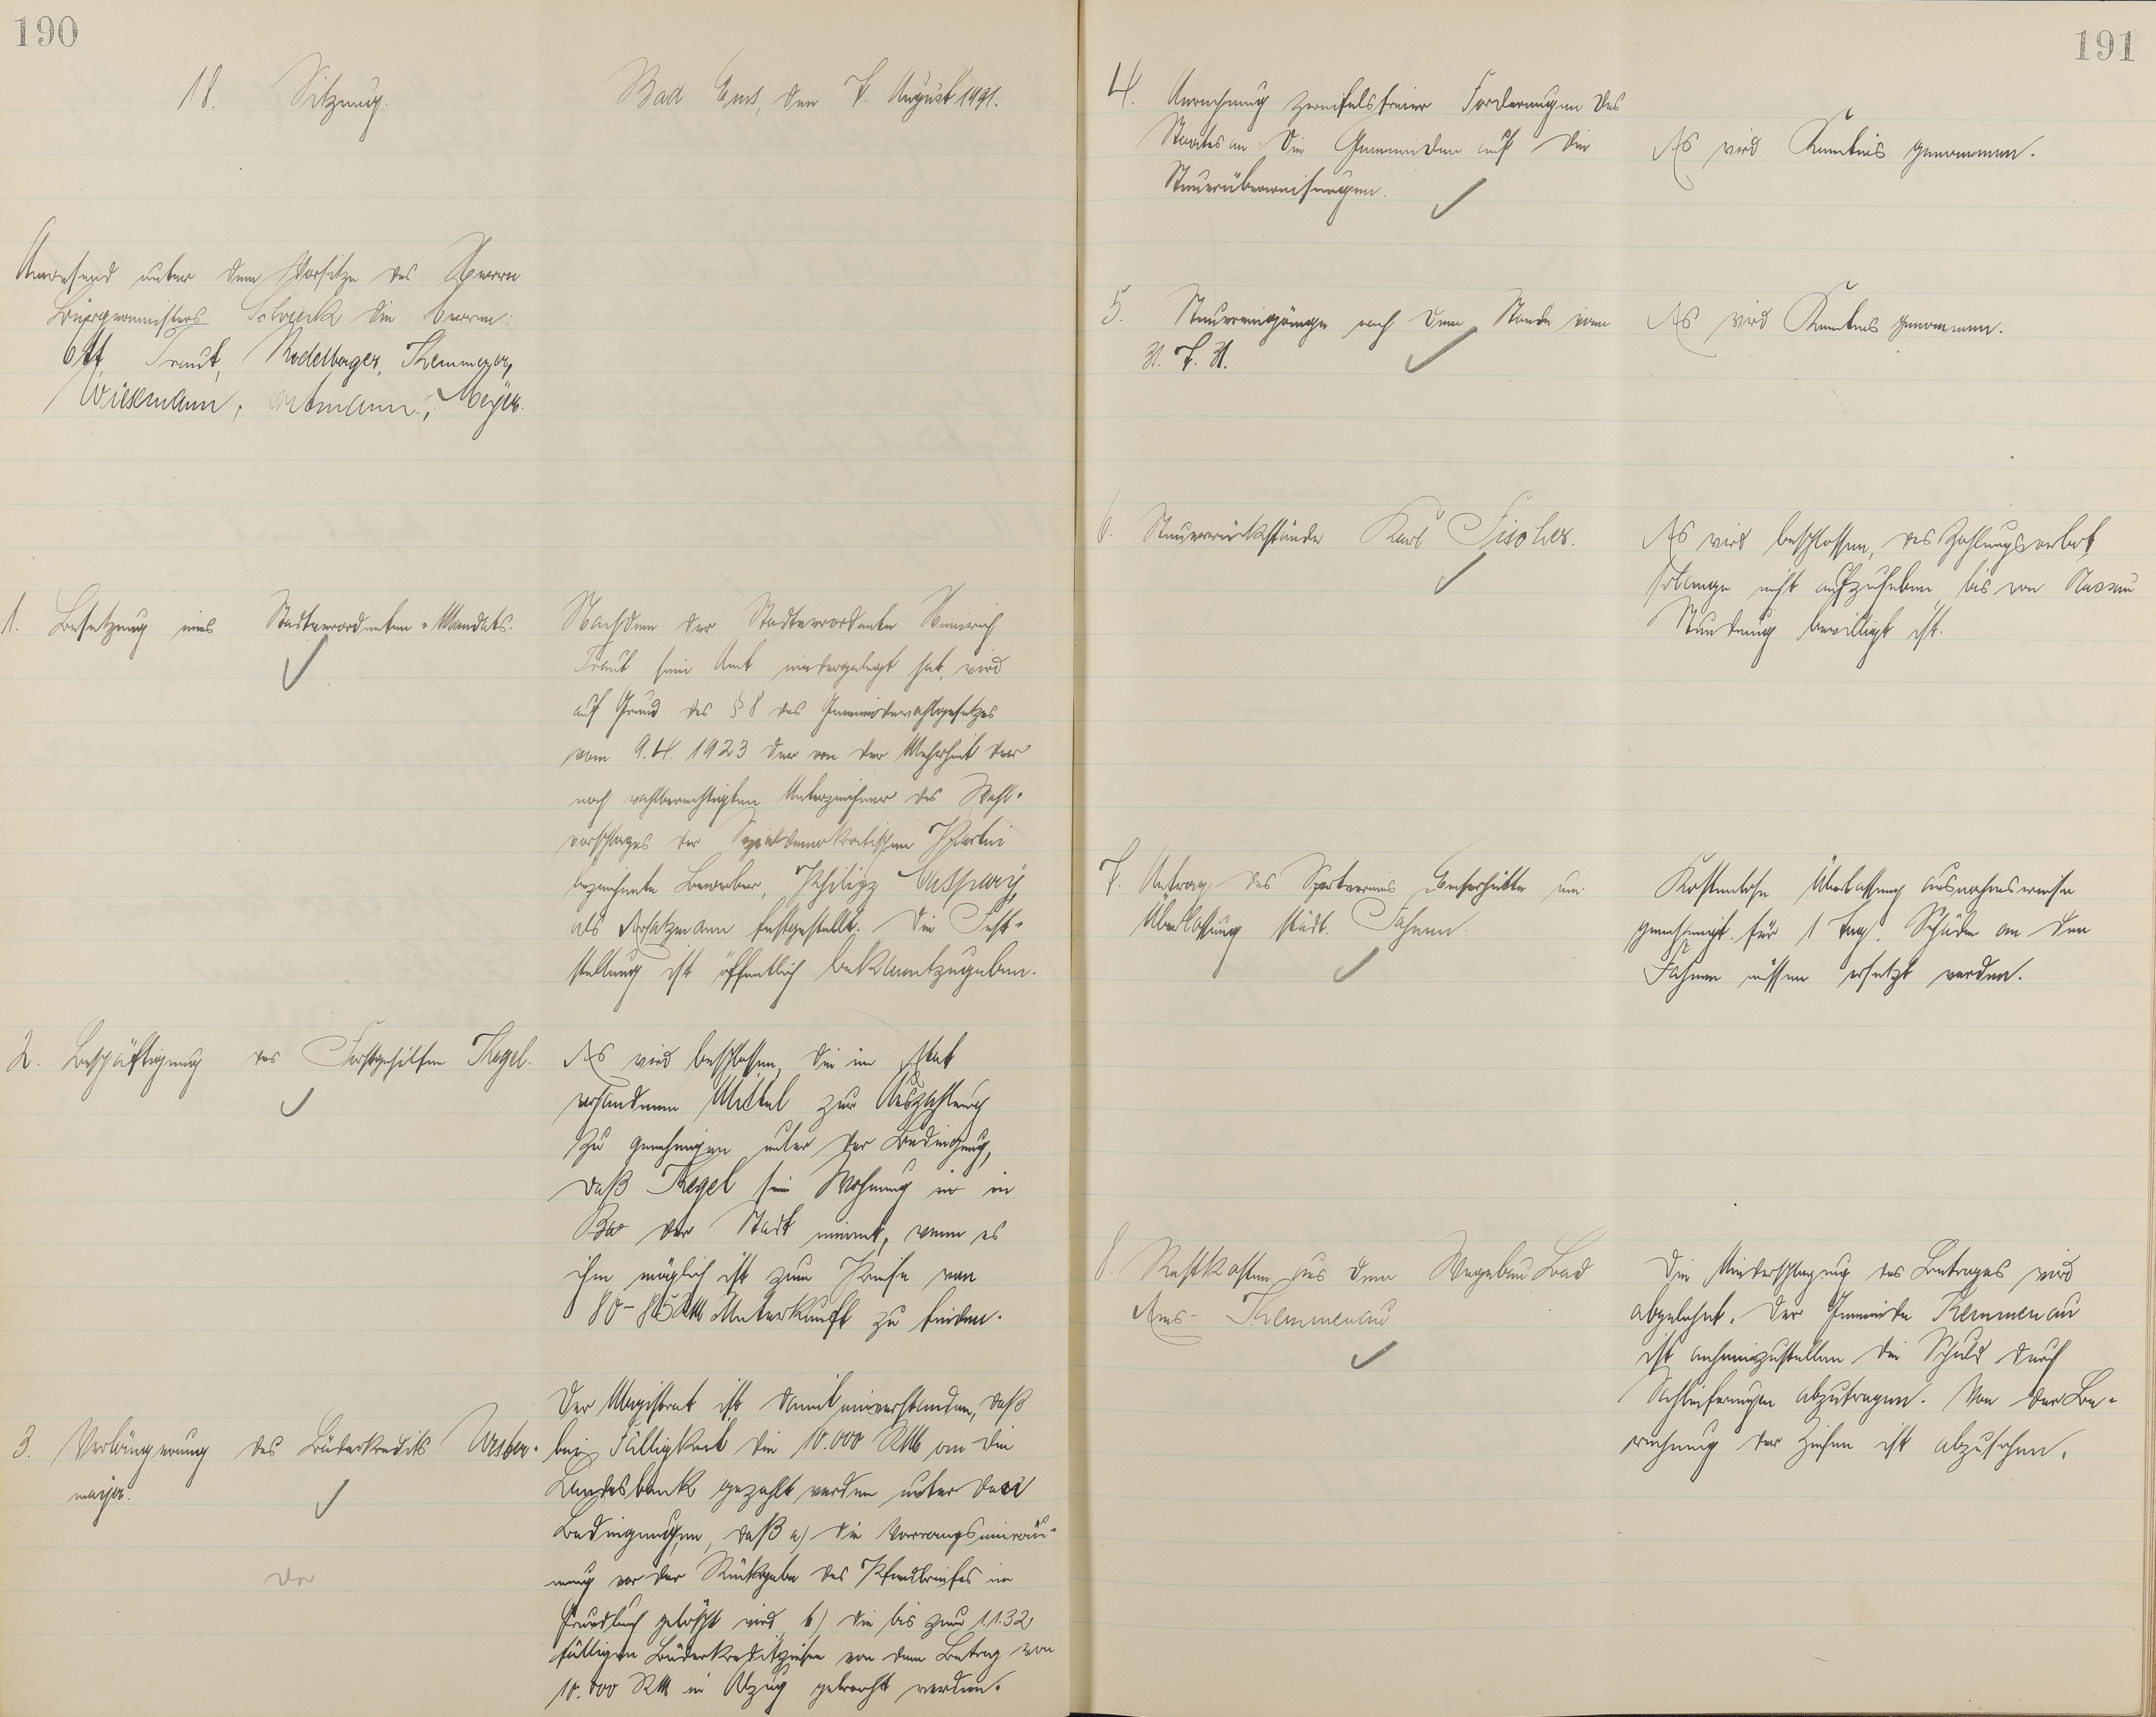 190
18. Sitzung.
Bad Ems, den 7. August 1931.
Anwesend unter dem Vorsitze des Herrn
Bürgermeisters die Herren:
Ott, Traut, Rodelberger, Kemmerer,
Wiesmann, Artmann, Meyer.
1. Besetzung eines Stadtverordneten-Mandats.
Nachdem der Stadtverordnete Heinrich
Traut sein Amt niedergelegt hat, wird
auf Grund des § 8 des Gemeindewahlgesetzes
vom 9.4.1923 der von der Mehrheit der
noch wahlberechtigten Unterzeichner des Wahl-
vorschlages der Sozialdemokratischen Partei
bezeichnete Bewerber, Philipp Caspary,
als Ersatzmann festgestellt. Die Fest-
stellung ist öffentlich bekanntzugeben.
2. Beschäftigung des Forstgehilfen Kegel.
Es wird beschlossen, die im Etat
vorhandenen Mittel zur Auszahlung
zu genehmigen unter der Bedingung,
daß Kegel seine Wohnung in
der Stadt nimmt, wenn es
ihm möglich ist zum Preise von
80-85 RM Unterkunft zu finden.
3. Verlängerung des Bäderkredits Wester-
meyer.
Der Magistrat ist damit einverstanden, daß
bei Fälligkeit die 10.000 RM an die
Landesbank gezahlt werden unter den
Bedingungen, daß a) die Vorrangseinräu-
mung vor der Rückgabe des Pfandbriefes im
Grundbuch gelöscht wird, b) die bis zum 1.1.32
fälligen Bäderkreditzinsen von dem Betrag von
10.000 RM in Abzug gebracht werden.
191
4. Anrechnung zweifelsfreier Forderungen des
Staates an die Gemeinden auf die
Steuerüberweisungen.
Es wird Kenntnis genommen.
5. Steuereingänge nach dem Stande vom
31. 7. 31.
Es wird Kenntnis genommen.
6. Steuerrückstände Karl Fischer.
Es wird beschlossen, das Zahlungsverbot
solange nicht aufzuheben, bis von Nassau
Stundung bewilligt ist.
7. Antrag des Sportvereins Emserhütte um
Überlassung städt. Fahnen.
Kostenlose Überlassung ausnahmsweise
genehmigt für 1 Tag. Schäden an den
Fahnen müssen ersetzt werden.
8. Restkosten aus dem Wegebau Bad
Ems- Kemmenau
Die Niederschlagung des Betrages wird
abgelehnt. Der Gemeinde Kemmenau
ist anheimzustellen die Schuld durch
abzutragen. Von der Be-
rechnung der Zinsen ist abzusehen.